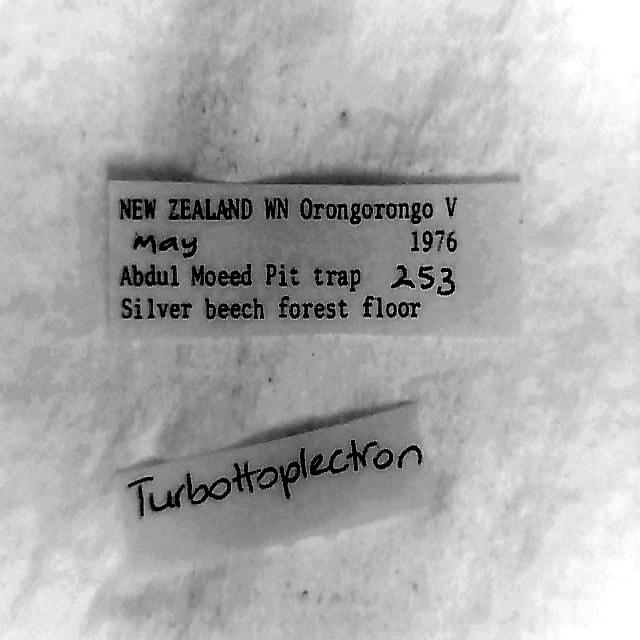 NEW ZEALAND WN Orongorongo V
May 1976
Abdul Moeed Pit trap 253
Silver beech forest floor
Turbottoplectron